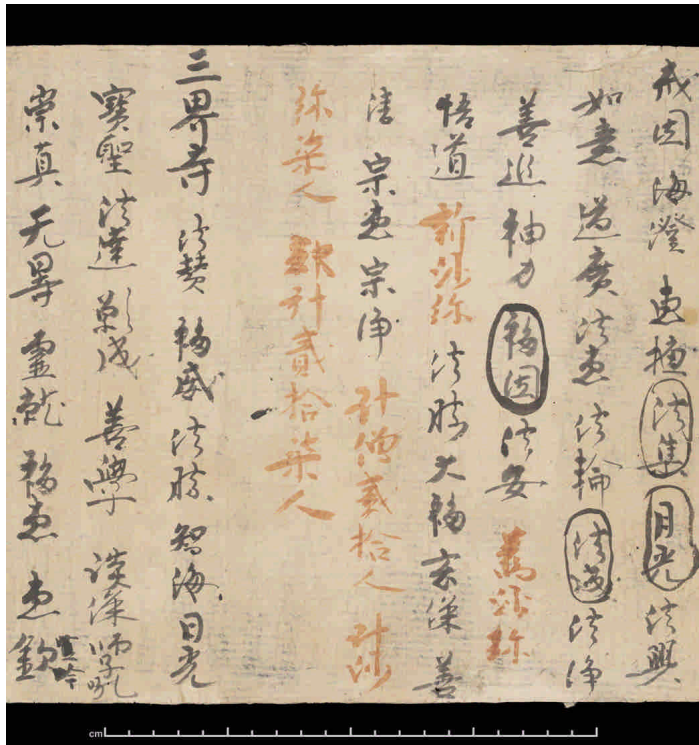 戒因 海澄 惠㨗 法集 日光 法興
如意 道廣 法惠 法輪 法滿 法净
善巡 神力 福因 法安 舊沙弥
悟道 新沙弥 法勝 大福 玄深 善
清 宗惠 宗净 計僧貳拾人 計沙
弥柒人 都計貳拾柒人
三界寺 法賛 福威 法勝 智海 日光
寶聖 法達 成 善學 談深 師
崇真 无㝵 靈就 福惠 惠欽
cm